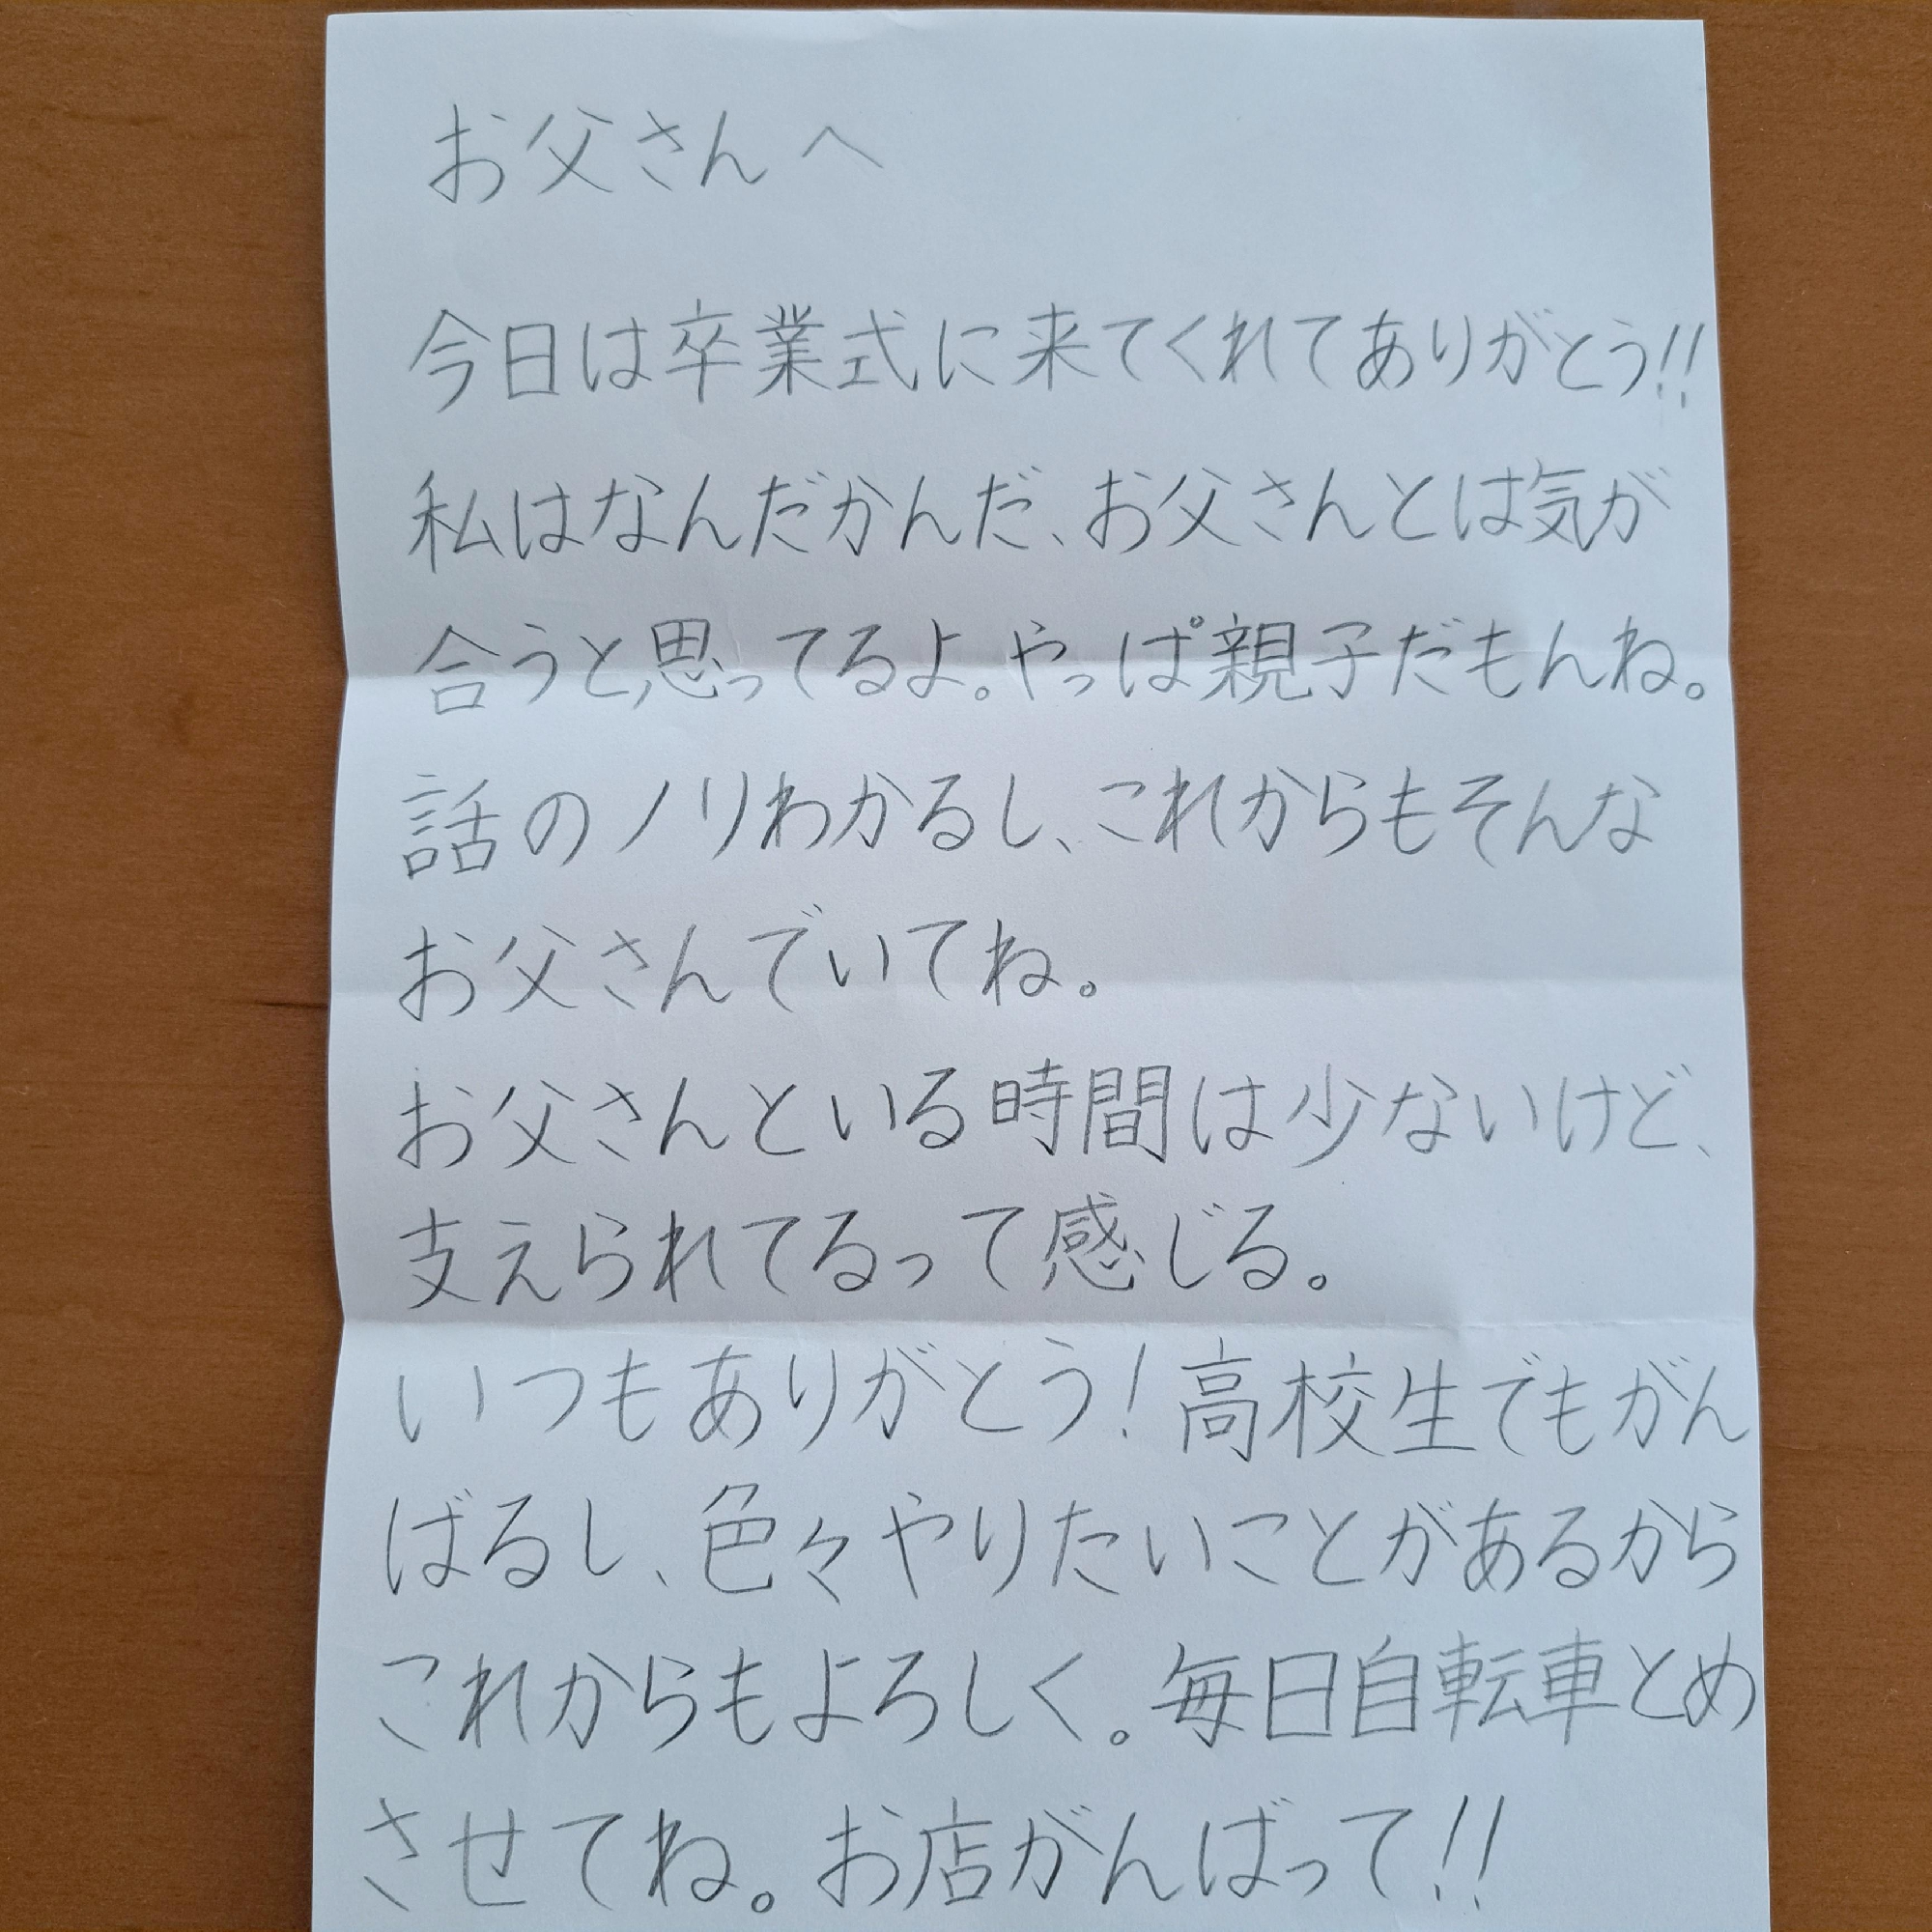 お父さんへ
今日は卒業式に来てくれてありがとう!!
私はなんだかんだ、お父さんとは気が
合うと思ってるよ。やっぱ親子だもんね。
話のノリわかるし、これからもそんな
お父さんでいてね。
お父さんといる時間は少ないけど、
支えられてるって感じる。
いつもありがとう!高校生でもがん
ばるし、色々やりたいことがあるから
これからもよろしく。毎日自転車とめ
させてね。お店がんばって!!